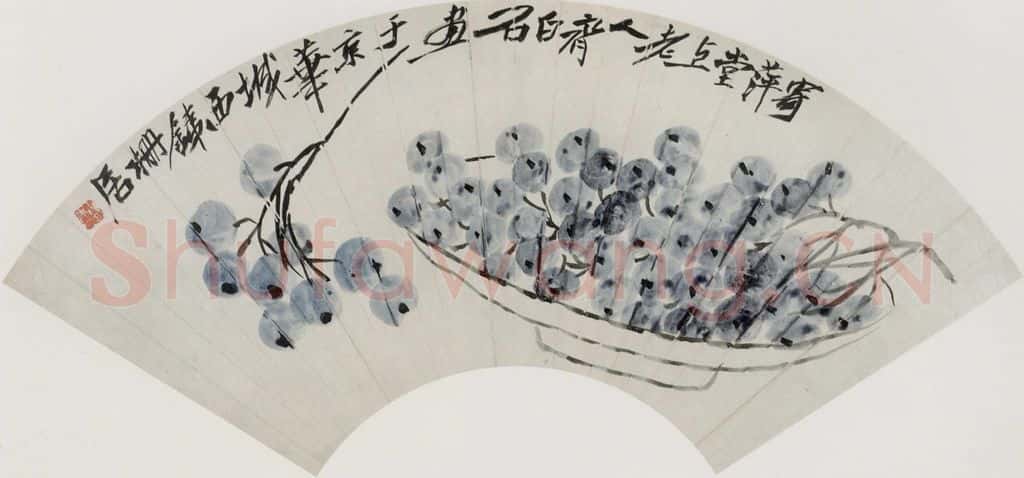 寄萍堂上老人齊白石畫于京華城西鐵柵居
Shufawang.CN